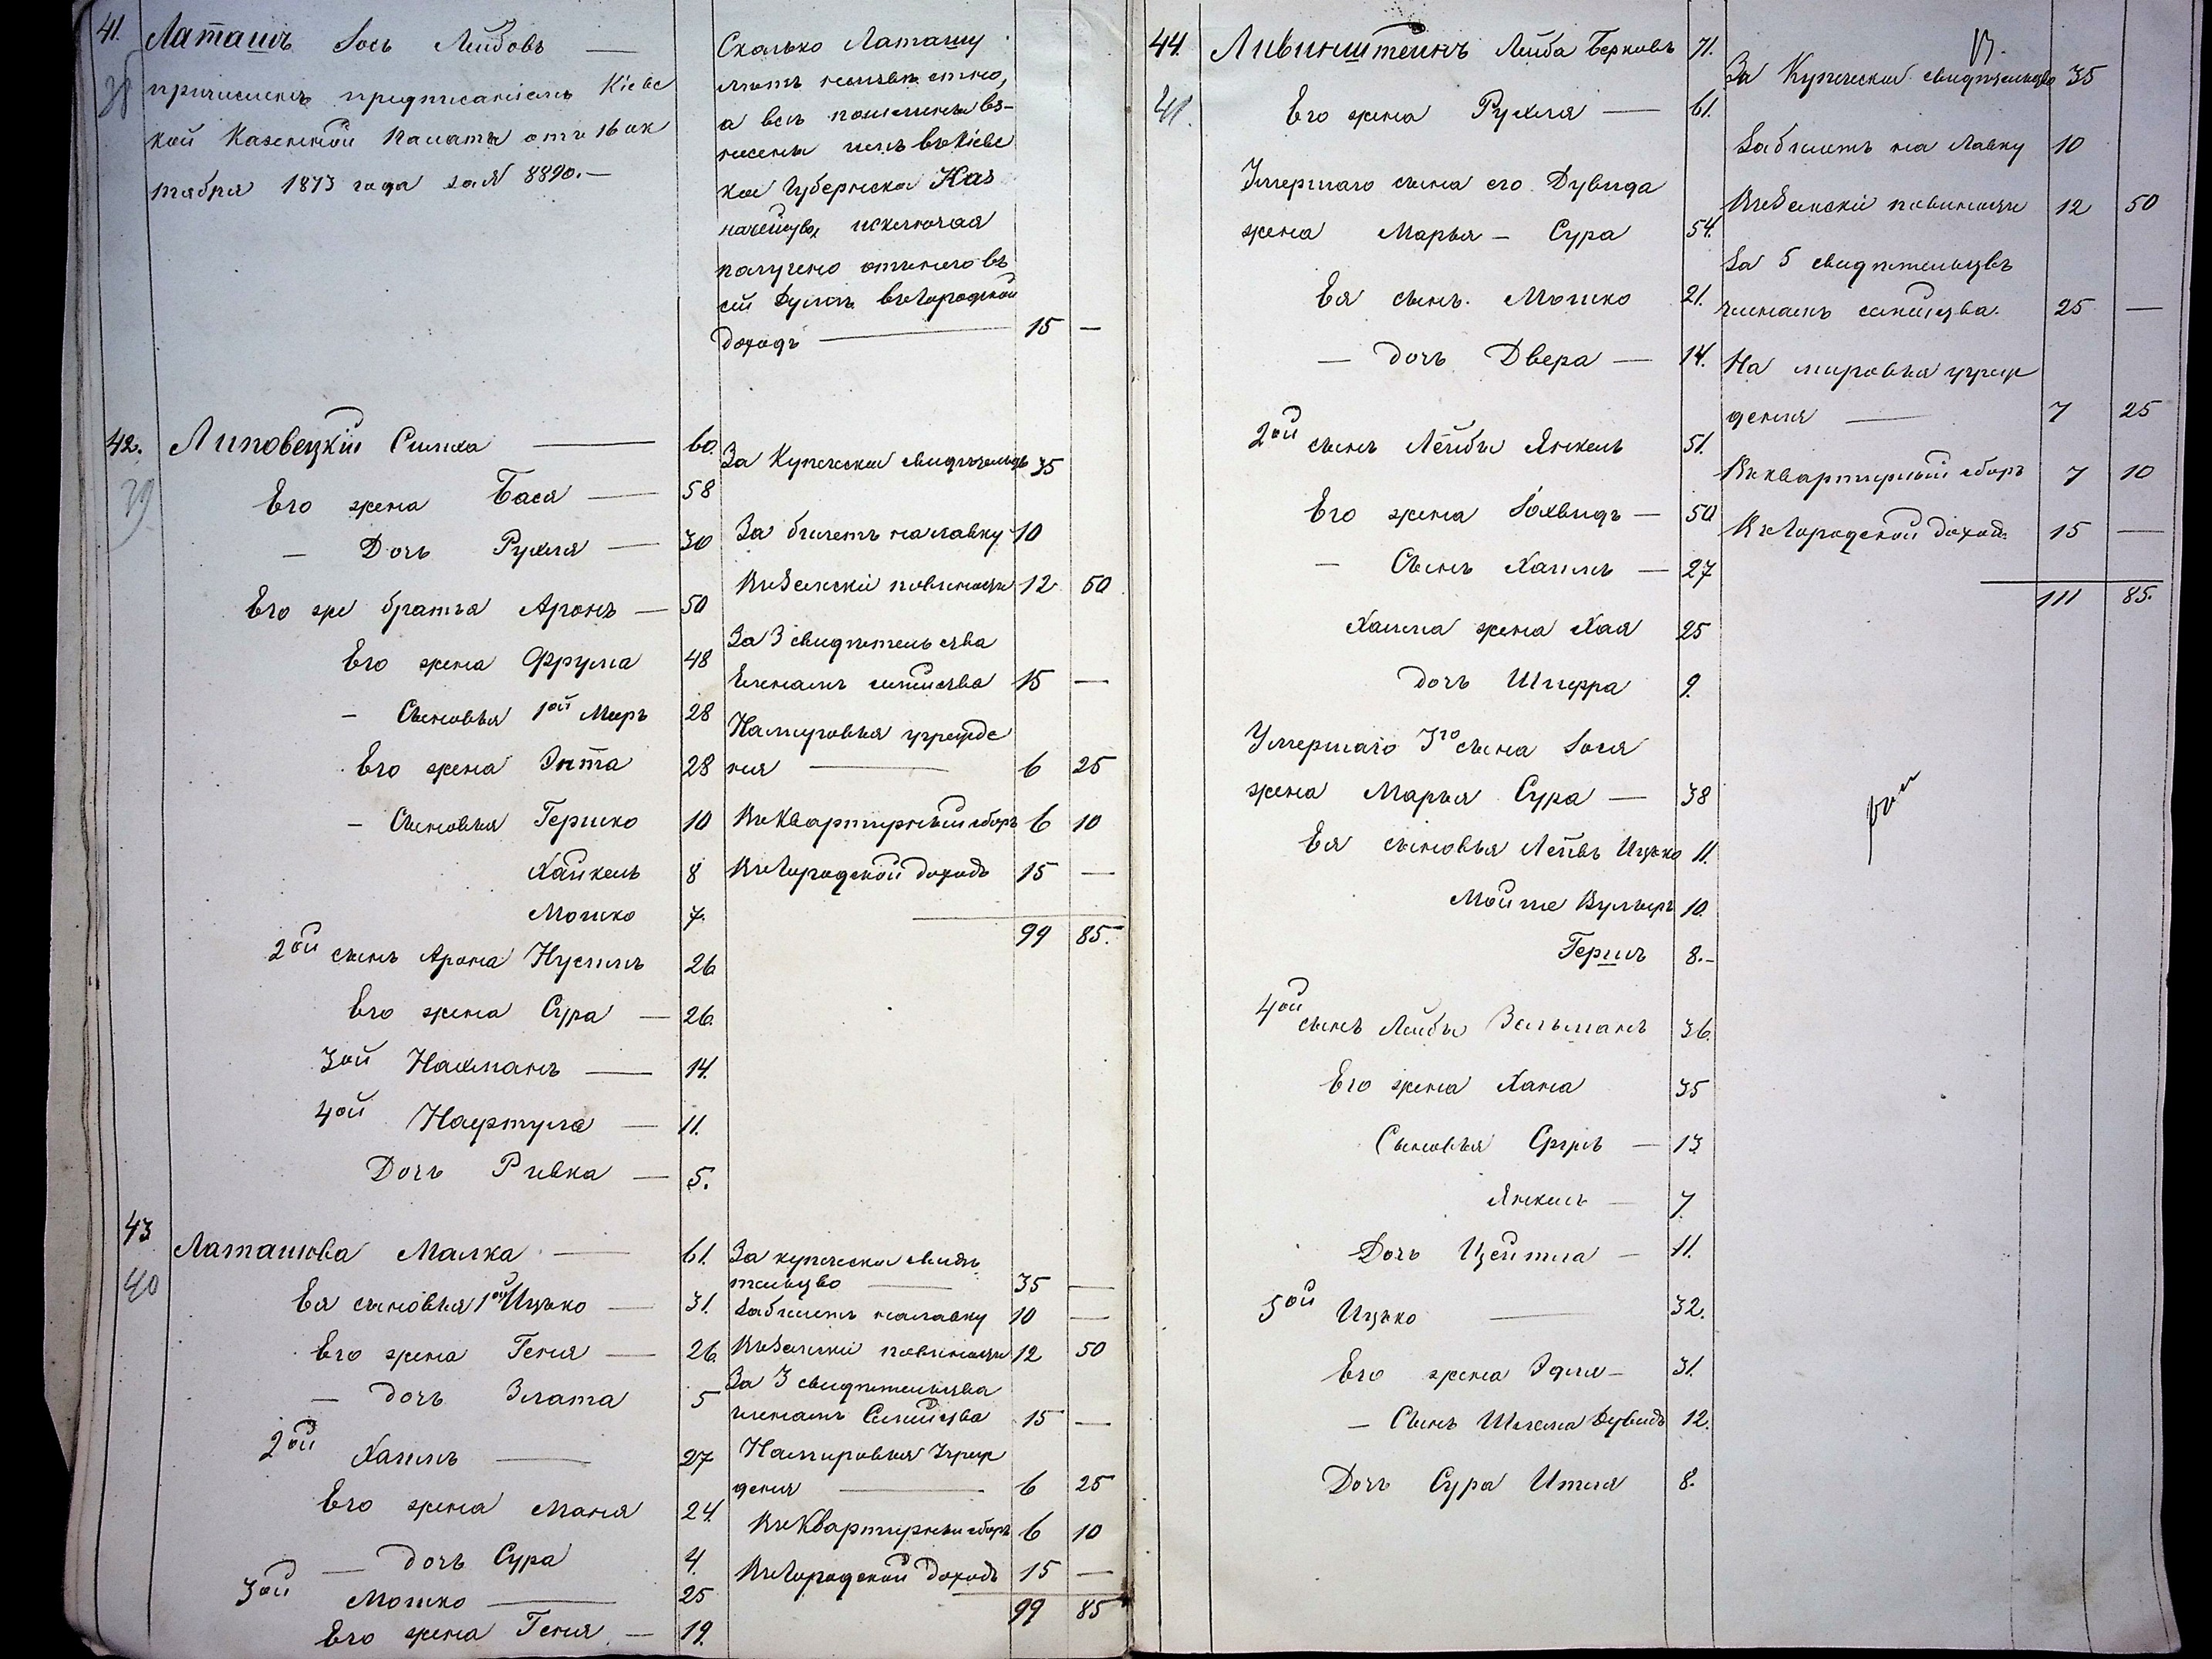 41. Латашъ Іось Лейбовъ —
38
причисленъ предписаніемъ Кіевс
кой Казенной Палаты отъ 16 ок
тября 1873 года за № 8890. —
Сколько Латашу
лѣтъ неизвѣстно,
а всѣ пошлины вз-
несены имъ въ Кіевс
кое Губернское Каз
начейство, исключая
получено отъ него въ
сей Думѣ въ Городской
доходъ — 15 —
42. Липовецкій Симха — 60.
39
Его жена Бася — 58
— Дочь Рухля — 30
Его же братья Аронъ — 50
Его жена Фрума 48
— Сыновья 1ой Меръ 28
Его жена Энта 28
— Сыновья Гершко 10
Хайкель 8
Мошко 7.
2ой сынъ Арона Нусимъ 26
Его жена Сура — 26.
3ой Нахманъ — 14.
4ой Нафтула — 11.
Дочь Ривка — 5.
За Купеческое свидѣтельст 35
За билетъ на лавку 10
Въ Земскіе повинности 12 50
За 3 свидѣтельства
Членамъ семейства 15 —
На мировыя учрежде
нія — 6 25
Въ Квартирный сборъ 6 10
Въ Городской доходъ 15 —
99 85.
43 Латашова Малка — 61.
40
Ея сыновья 1ой Ицько — 31.
Его жена Геня — 26.
— дочь Злата 5
2ой Хаимъ — 27
Его жена Маня 24.
— дочь Сура 4.
3ой Мошко — 25
Его жена Геня — 19.
За купеческое свидѣ
тельство — 35 —
За билетъ на лавку 10 —
Въ Земскіе повинности 12 50
За 3 свидѣтельства
членамъ Семейства 15 —
На мировыя Учреж
денія — 6 25
Въ Квартирный сборъ 6 10
Въ Городской доходъ 15 —
99 85
44. Ливинштейнъ Лейба Берковъ 71.
41.
Его жена Рухля — 61.
Умершаго сына его Дувида
жена Марья – Сура 54.
Ея сынъ Мошко 21.
— дочь Двера — 14.
2ой сынъ Лейбы Янкель 51.
Его жена Іохвидъ — 50
— Сынъ Хаимъ — 27
Хаима жена Хая 25
дочь Шперра 9.
Умершаго 3го сына Іося
жена Марья Сура — 38
Ея сыновья Лейвъ Ицько 11.
Мойше Вульфъ 10.
Гершъ 8. –
4ой сынъ Лейбы Зельманъ 36.
Его жена Хана 35
Сыновья Сруль — 13
Янкель — 7
Дочь Цейтла — 11.
5ой Ицько — 32.
Его жена Эдля — 31.
— Сынъ Шлема Дувидъ 12.
Дочь Сура Итля 8.
13.
За Купеческое свидѣтельство 35
За билетъ на лавку 10
Въ Земскіе повинности 12 50
За 5 свидѣтельствъ
членамъ семейства. 25 —
На мировыя учреж
денія — 7 25
Въ квартирный сборъ 7 10
Въ Городской доходъ 15 —
111 85.